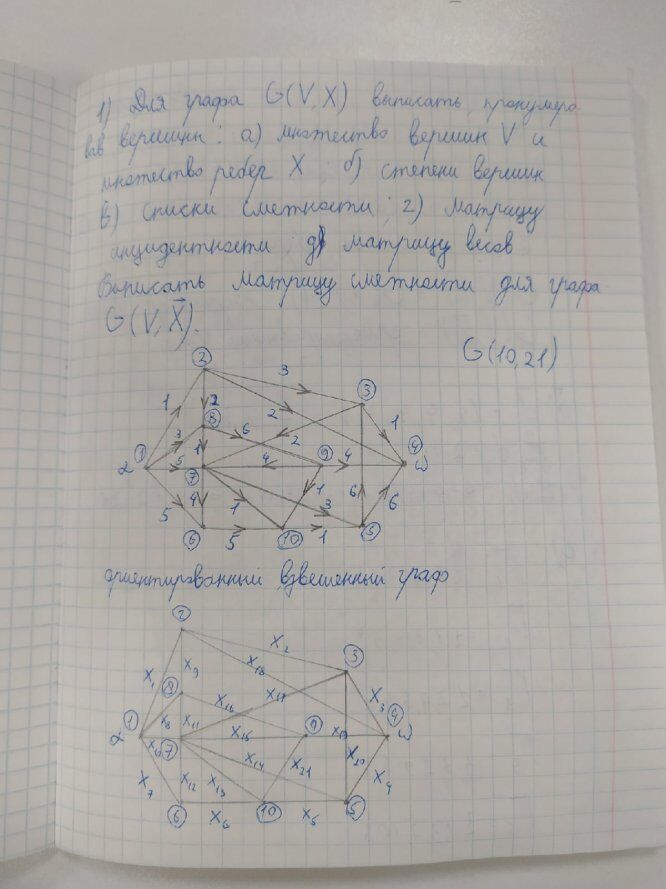 1) Для графа G(V,X) выписать, пронумеро
вав вершины: а) множество вершин V и
множество ребер X; б) степени вершин
в) списки смежности; г) матрицу
инцидентности; д) матрицу весов
Выписать матрицу смежности для графа
G(V, X⃗).
G(10,21)
2
3
3
1
2
8
3
6
2
2
1
1
α
5
1
7
4
9
4
4
ω
5
4
1
3
1
6
6
6
5
10
1
5
ориентированный взвешенный граф
2
x₂
3
x₁
x₉
x₁₈
8
x₁₇
x₃
1
α
x₈
x₁₁
x₁₆
9
4
ω
x₁₀
7
x₁₅
x₁₉
x₇
x₁₂
x₁₃
x₁₄
x₂₁
x₂₀
x₄
6
x₆
10
x₅
5